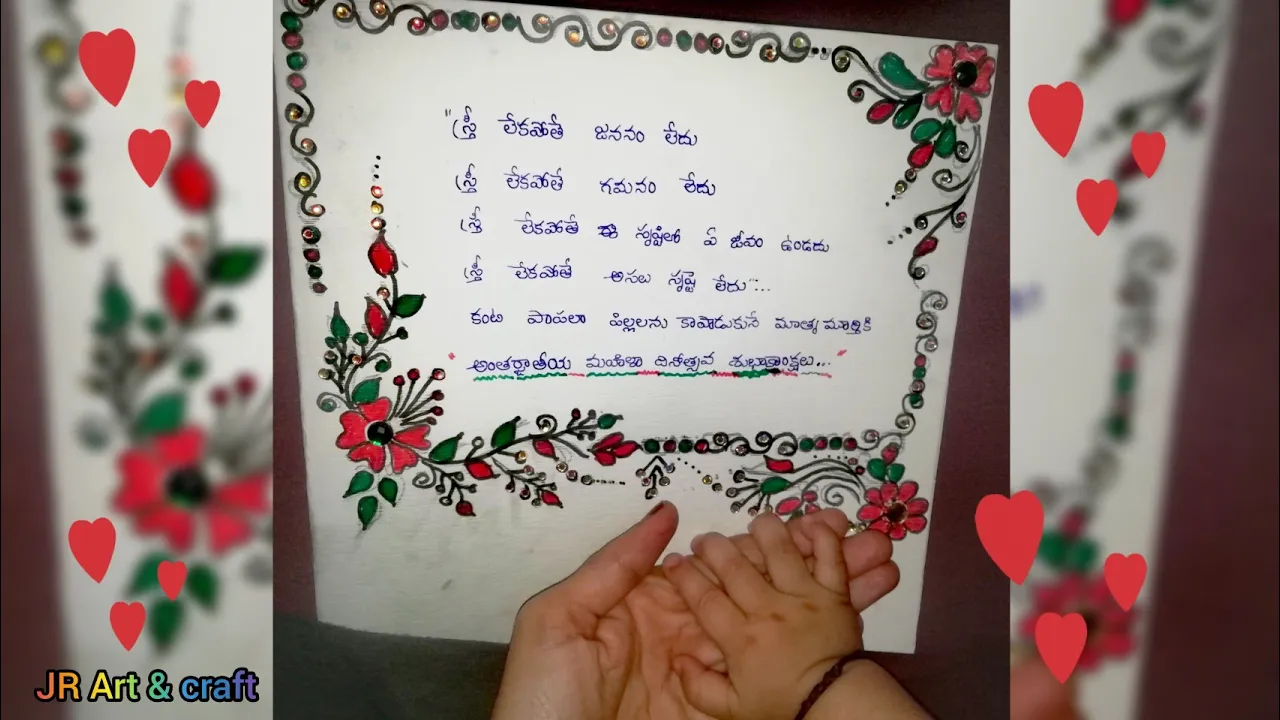 "స్త్రీ లేకపోతే జననం లేదు
స్త్రీ లేకపోతే గమనం లేదు
స్త్రీ లేకపోతే ఈ సృష్టిలో ఏ జీవం ఉండదు
స్త్రీ లేకపోతే అసలు సృష్టే లేదు":..
కంటి పాపలా పిల్లలను కాపాడుకునే మాతృ మూర్తికి
" అంతర్జాతీయ మహిళా దినోత్సవ శుభాకాంక్షలు... "
JR Art & craft